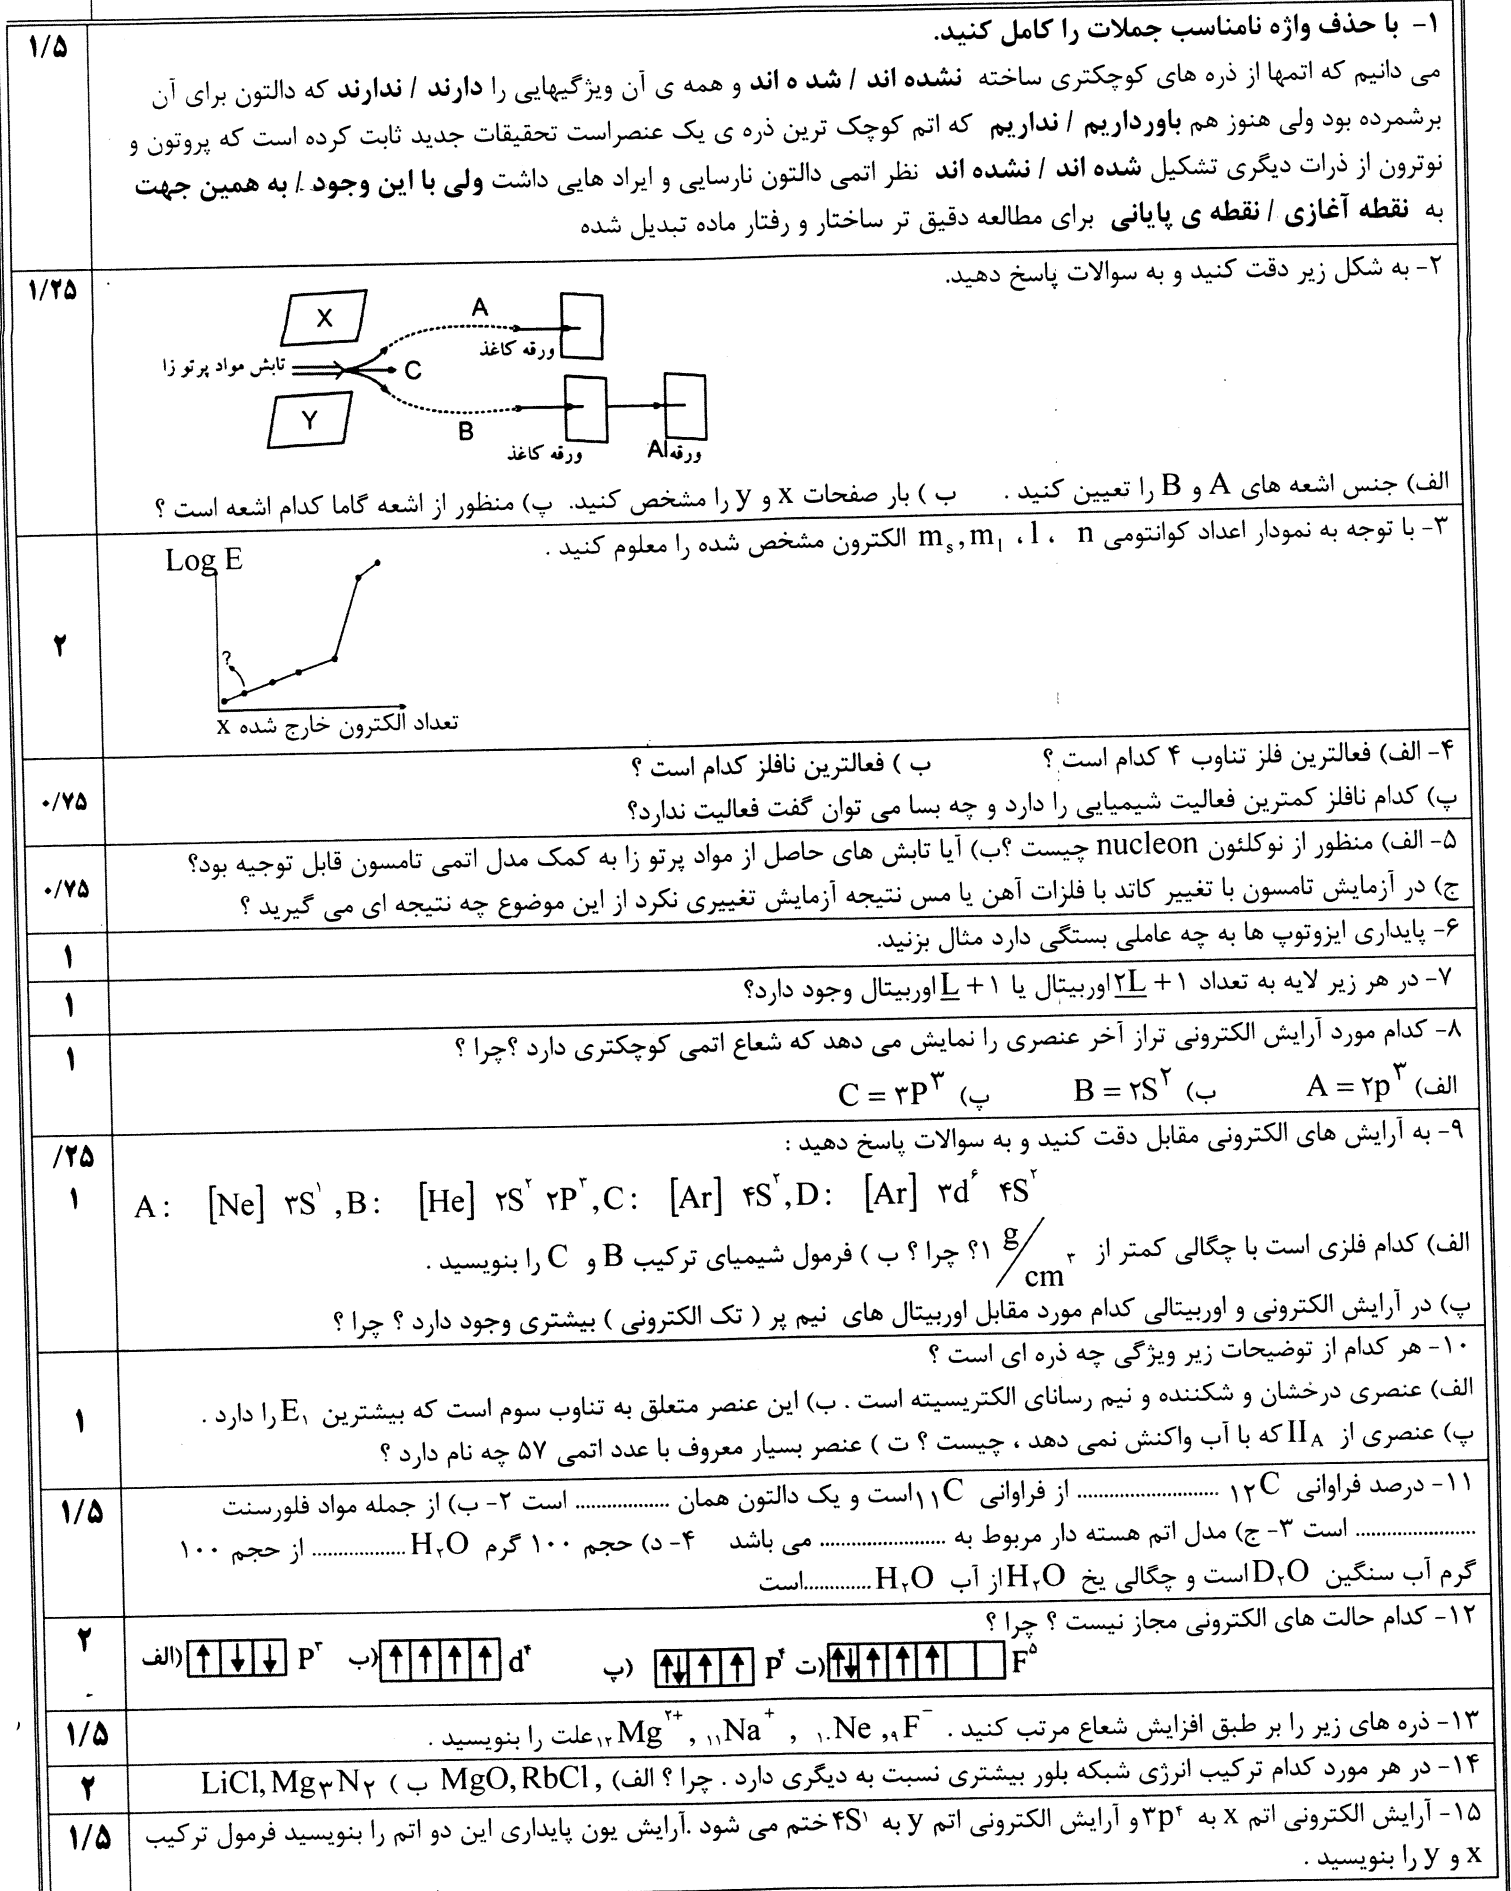 ۱- با حذف واژه نامناسب جملات را کامل کنید.
۱/۵
می دانیم که اتمها از ذره های کوچکتری ساخته نشده اند / شد ه اند و همه ی آن ویژگیهایی را دارند / ندارند که دالتون برای آن
برشمرده بود ولی هنوز هم باورداریم / نداریم که اتم کوچک ترین ذره ی یک عنصراست تحقیقات جدید ثابت کرده است که پروتون و
نوترون از ذرات دیگری تشکیل شده اند / نشده اند نظر اتمی دالتون نارسایی و ایراد هایی داشت ولی با این وجود / به همین جهت
به نقطه آغازی / نقطه ی پایانی برای مطالعه دقیق تر ساختار و رفتار ماده تبدیل شده
۲- به شکل زیر دقت کنید و به سوالات پاسخ دهید.
۱/۲۵
X
A
ورقه کاغذ
تابش مواد پرتو زا
C
Y
B
ورقه کاغذ
ورقهAl
الف) جنس اشعه های A و B را تعیین کنید . ب ) بار صفحات x و y را مشخص کنید. پ) منظور از اشعه گاما کدام اشعه است ؟
۳- با توجه به نمودار اعداد کوانتومی n ، l ، mₛ,mₗ الکترون مشخص شده را معلوم کنید .
۲
Log E
?
تعداد الکترون خارج شده x
۴- الف) فعالترین فلز تناوب ۴ کدام است ؟ ب ) فعالترین نافلز کدام است ؟
۰/۷۵
پ) کدام نافلز کمترین فعالیت شیمیایی را دارد و چه بسا می توان گفت فعالیت ندارد؟
۵- الف) منظور از نوکلئون nucleon چیست ؟ب) آیا تابش های حاصل از مواد پرتو زا به کمک مدل اتمی تامسون قابل توجیه بود؟
۰/۷۵
ج) در آزمایش تامسون با تغییر کاتد با فلزات آهن یا مس نتیجه آزمایش تغییری نکرد از این موضوع چه نتیجه ای می گیرید ؟
۶- پایداری ایزوتوپ ها به چه عاملی بستگی دارد مثال بزنید.
۱
۷- در هر زیر لایه به تعداد ۲L +۱ اوربیتال یا L +۱ اوربیتال وجود دارد؟
۱
۸- کدام مورد آرایش الکترونی تراز آخر عنصری را نمایش می دهد که شعاع اتمی کوچکتری دارد ؟چرا ؟
۱
الف) A = ۲p^۳ ب) B = ۲S^۲ پ) C = ۳P^۳
۹- به آرایش های الکترونی مقابل دقت کنید و به سوالات پاسخ دهید :
/۲۵
۱
A: [Ne] ۳S^۱ ,B: [He] ۲S^۲ ۲P^۳,C: [Ar] ۴S^۲,D: [Ar] ۳d^۶ ۴S^۲
الف) کدام فلزی است با چگالی کمتر از ۱ g/cm^۳؟ چرا ؟ ب ) فرمول شیمیای ترکیب B و C را بنویسید .
پ) در آرایش الکترونی و اوربیتالی کدام مورد مقابل اوربیتال های نیم پر ( تک الکترونی ) بیشتری وجود دارد ؟ چرا ؟
۱۰- هر کدام از توضیحات زیر ویژگی چه ذره ای است ؟
۱
الف) عنصری درخشان و شکننده و نیم رسانای الکتریسیته است . ب) این عنصر متعلق به تناوب سوم است که بیشترین E₁ را دارد .
پ) عنصری از II_A که با آب واکنش نمی دهد ، چیست ؟ ت ) عنصر بسیار معروف با عدد اتمی ۵۷ چه نام دارد ؟
۱۱- درصد فراوانی ۱۲C .......................... از فراوانی ۱۱C است و یک دالتون همان ................. است ۲- ب) از جمله مواد فلورسنت
۱/۵
...................... است ۳- ج) مدل اتم هسته دار مربوط به ....................... می باشد ۴- د) حجم ۱۰۰ گرم H۲O ................. از حجم ۱۰۰
گرم آب سنگین D۲O است و چگالی یخ H۲O از آب H۲O .............است
۱۲- کدام حالت های الکترونی مجاز نیست ؟ چرا ؟
۲
الف) P^۳ ب) d^۴ پ) P^۴ ت) F^۵
۱۳- ذره های زیر را بر طبق افزایش شعاع مرتب کنید . ₁₂Mg^۲+ , ₁₁Na^+ , ₁₀Ne ,₉F^- علت را بنویسید .
۱/۵
۱۴- در هر مورد کدام ترکیب انرژی شبکه بلور بیشتری نسبت به دیگری دارد . چرا ؟ الف) , MgO, RbCl ب ) LiCl, Mg۳N۲
۲
۱۵- آرایش الکترونی اتم x به ۳p^۴ و آرایش الکترونی اتم y به ۴S^۱ ختم می شود .آرایش یون پایداری این دو اتم را بنویسید فرمول ترکیب
۱/۵
x و y را بنویسید .